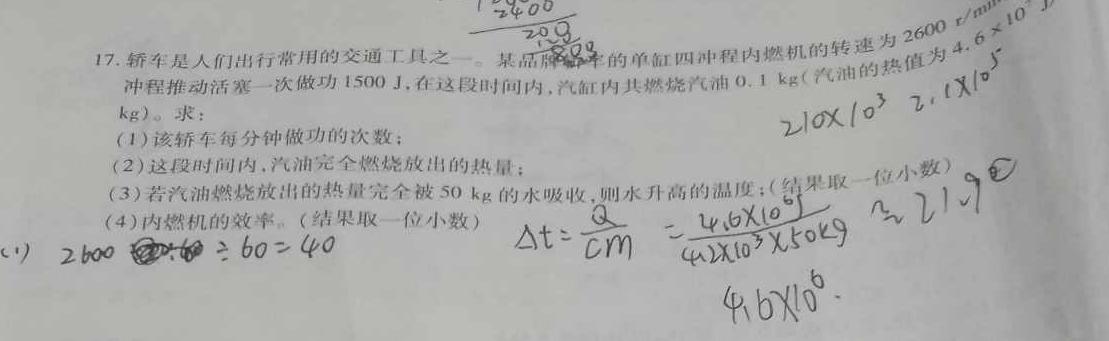 2400
200
17. 轿车是人们出行常用的交通工具之一。某品牌轿车的单缸四冲程内燃机的转速为 2600 r/min
冲程推动活塞一次做功 1500 J,在这段时间内,汽缸内共燃烧汽油 0.1 kg(汽油的热值为 4.6×10⁷ J/
kg)。求:
210×10³ 2.1×10⁵
(1)该轿车每分钟做功的次数;
(2)这段时间内,汽油完全燃烧放出的热量;
(3)若汽油燃烧放出的热量完全被 50 kg 的水吸收,则水升高的温度;(结果取一位小数)
(4)内燃机的效率。(结果取一位小数)
Δt = Q/CM = 4.6×10⁶J/4.2×10³×50kg ≈ 21.9
(1) 2600 ÷ 60 = 40
4.6×10⁶.